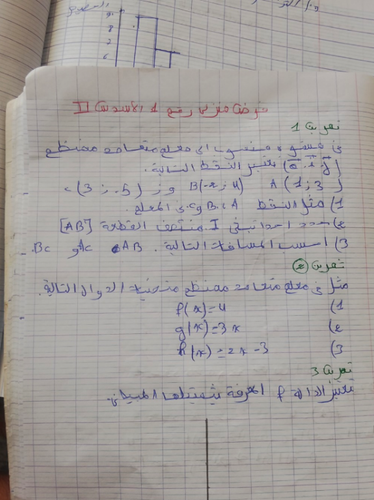 فرض منزلي رقم 1 الأسدس II
تمرين 1
في مستوى منسوب إلى معلم متعامد ممنظم
(o, i, j) نعتبر النقط التالية:
A(1;3) و B(-2;4) و C(3;-5)
1) مثل النقط A و B و C في المعلم.
2) حدد احداثيتي I منتصف القطعة [AB]
3) احسب المسافات التالية: AB و AC و BC.
تمرين 2
مثل في معلم متعامد ممنظم منحنيات الدوال التالية.
1) f(x)=4
2) g(x)=3x
3) h(x)=2x-3
تمرين 3
نعتبر الدالة f المعرفة بتمثيلها المبياني